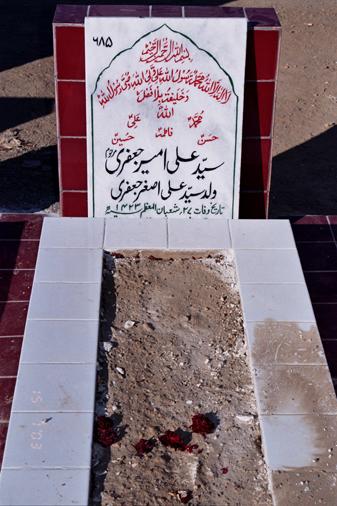 ۶۸۵
بسم الله الرحمن الرحيم
لا اله الا الله محمد رسول الله علی ولی الله وصی رسول الله
وخلیفته بلا فصل
الله
محمد علی
فاطمه
حسن حسین
سید علی امیر جعفری مرحوم
ولد سید علی اصغر جعفری
تاریخ وفات ۲۷ شعبان المعظم ۱۴۲۳ھ